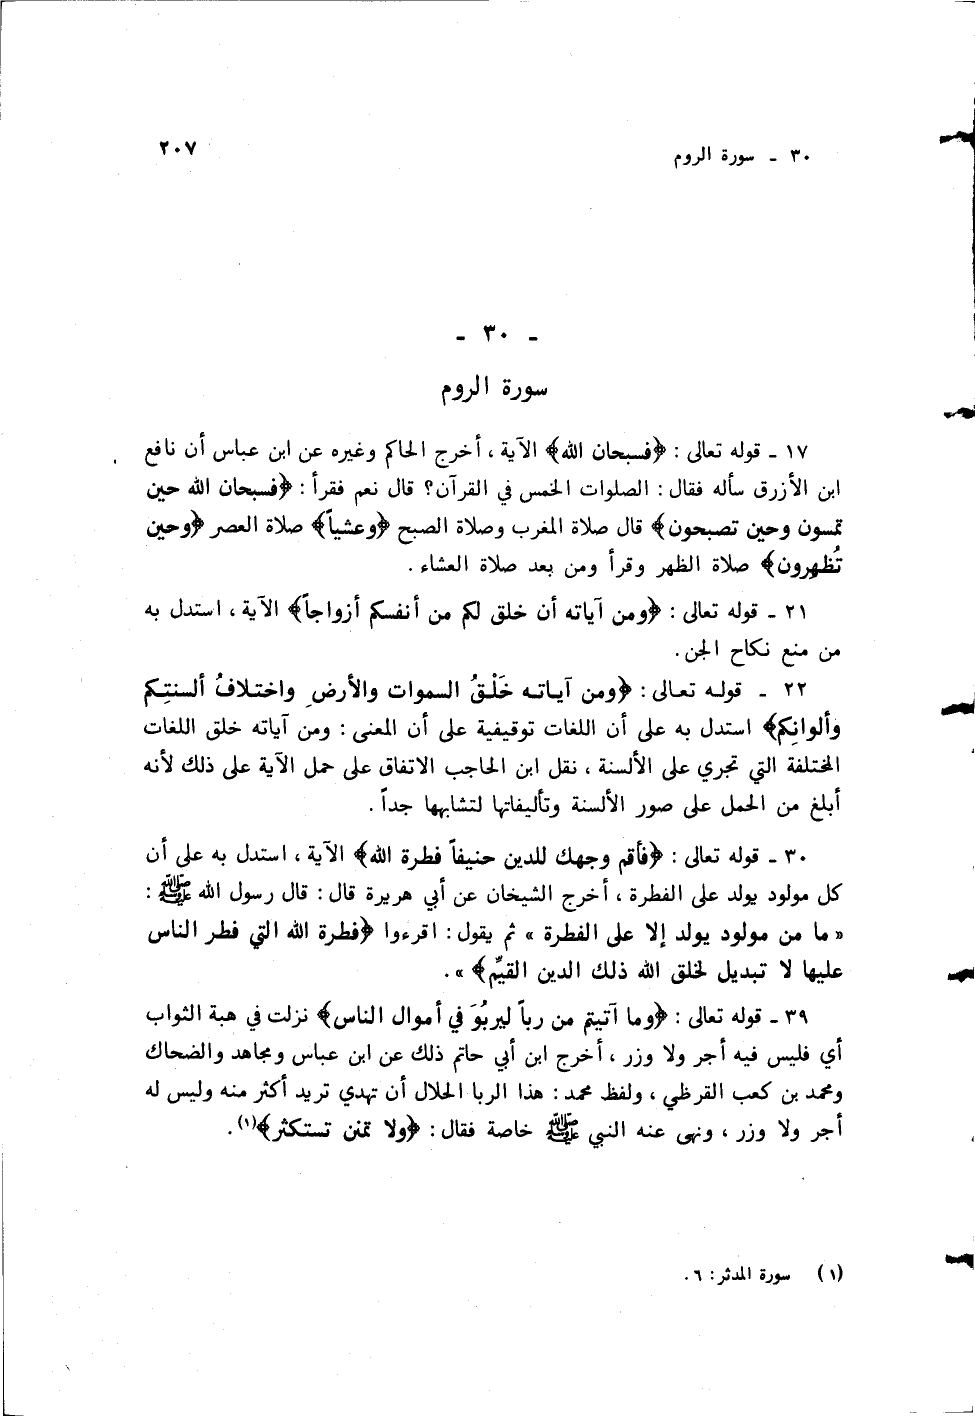 ٣٠ ـ سورة الروم
٢٠٧
ـ ٣٠ ـ
سورة الروم
١٧ ـ قوله تعالى : ﴿فسبحان الله﴾ الآية ، أخرج الحاكم وغيره عن ابن عباس أن نافع
ابن الأزرق سأله فقال : الصلوات الخمس في القرآن؟ قال نعم فقرأ : ﴿فسبحان الله حين
تمسون وحين تصبحون﴾ قال صلاة المغرب وصلاة الصبح ﴿وعشياً﴾ صلاة العصر ﴿وحين
تُظهرون﴾ صلاة الظهر وقرأ ومن بعد صلاة العشاء .
٢١ ـ قوله تعالى : ﴿ومن آياته أن خلق لكم من أنفسكم أزواجاً﴾ الآية ، استدل به
من منع نكاح الجن .
٢٢ ـ قوله تعالى : ﴿ومن آياته خَلْقُ السموات والأرضِ واختلافُ ألسنتِكم
وألوانِكم﴾ استدل به على أن اللغات توقيفية على أن المعنى : ومن آياته خلق اللغات
المختلفة التي تجري على الألسنة ، نقل ابن الحاجب الاتفاق على حمل الآية على ذلك لأنه
أبلغ من الحمل على صور الألسنة وتأليفاتها لتشابهها جداً .
٣٠ ـ قوله تعالى : ﴿فأقم وجهك للدين حنيفاً فطرة الله﴾ الآية ، استدل به على أن
كل مولود يولد على الفطرة ، أخرج الشيخان عن أبي هريرة قال : قال رسول الله ﷺ :
« ما من مولود يولد إلا على الفطرة » ثم يقول : اقرءوا ﴿فطرة الله التي فطر الناس
عليها لا تبديل لخلق الله ذلك الدين القيِّم﴾ » .
٣٩ ـ قوله تعالى : ﴿وما آتيتم من رباً ليربُوَ في أموال الناس﴾ نزلت في هبة الثواب
أي فليس فيه أجر ولا وزر ، أخرج ابن أبي حاتم ذلك عن ابن عباس ومجاهد والضحاك
ومحمد بن كعب القرظي ، ولفظ محمد : هذا الربا الحلال أن تهدي تريد أكثر منه وليس له
أجر ولا وزر ، ونهى عنه النبي ﷺ خاصة فقال : ﴿ولا تمنن تستكثر﴾(١) .
(١) سورة المدثر : ٦ .